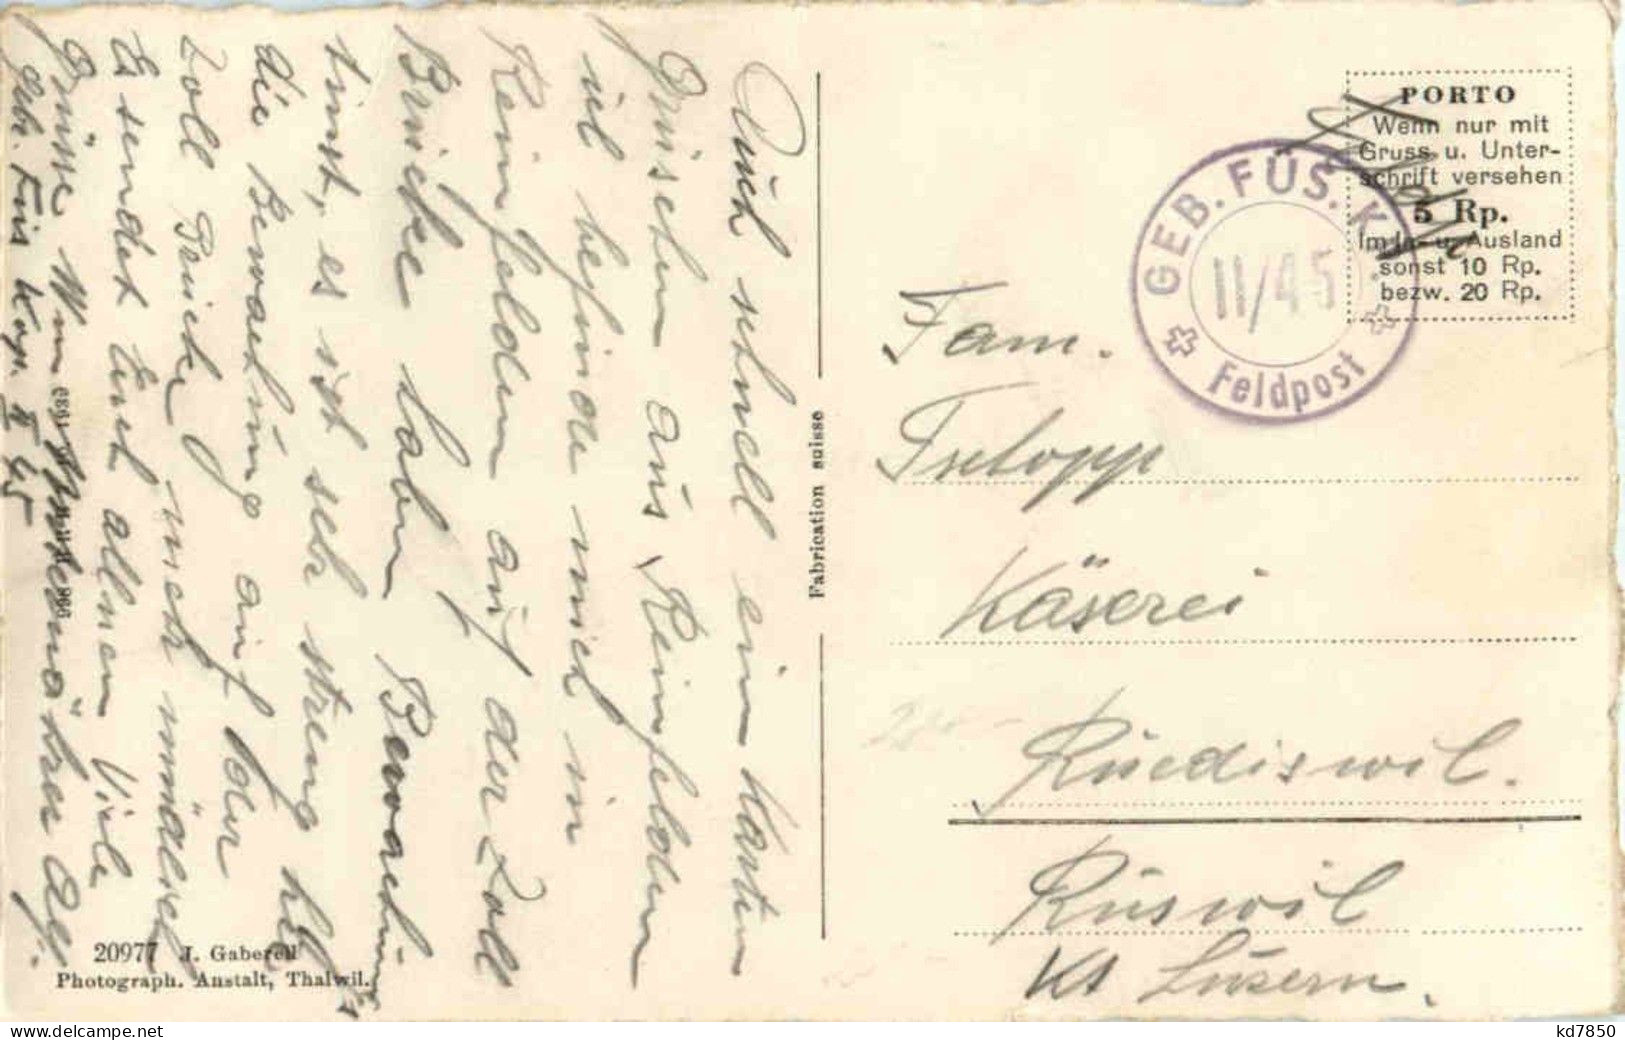 Auch schnell ein Karten
Grüschen aus Reinfelden
ich befinde mich in
Reinfelden auf der Zoll
Brücke haben Bewachung
tinst, es ist sehr streng
die Bewachung auf der
Zoll Brücke
Es sendet Euch allnen Viele
Grüsse
geb. Füs Kop. II 45
20977 J. Gaberell
Photograph. Anstalt, Thalwil.
Fabrication suisse
PORTO
Wenn nur mit
Gruss u. Unter-
schrift versehen
5 Rp.
Im In- u. Ausland
sonst 10 Rp.
bezw. 20 Rp.
GEB. FÜS. K
II/45
Feldpost
Fam.
Tschopp
Käserei
Ruediswil.
Ruswil
Kt Luzern.
kd7850